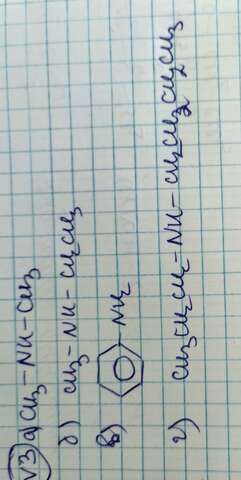 №3 а) CH3-NH-CH3
б) CH3-NH-CH2CH3
в) NH2
г) CH3CH2CH2-NH-CH2CH2CH2CH3